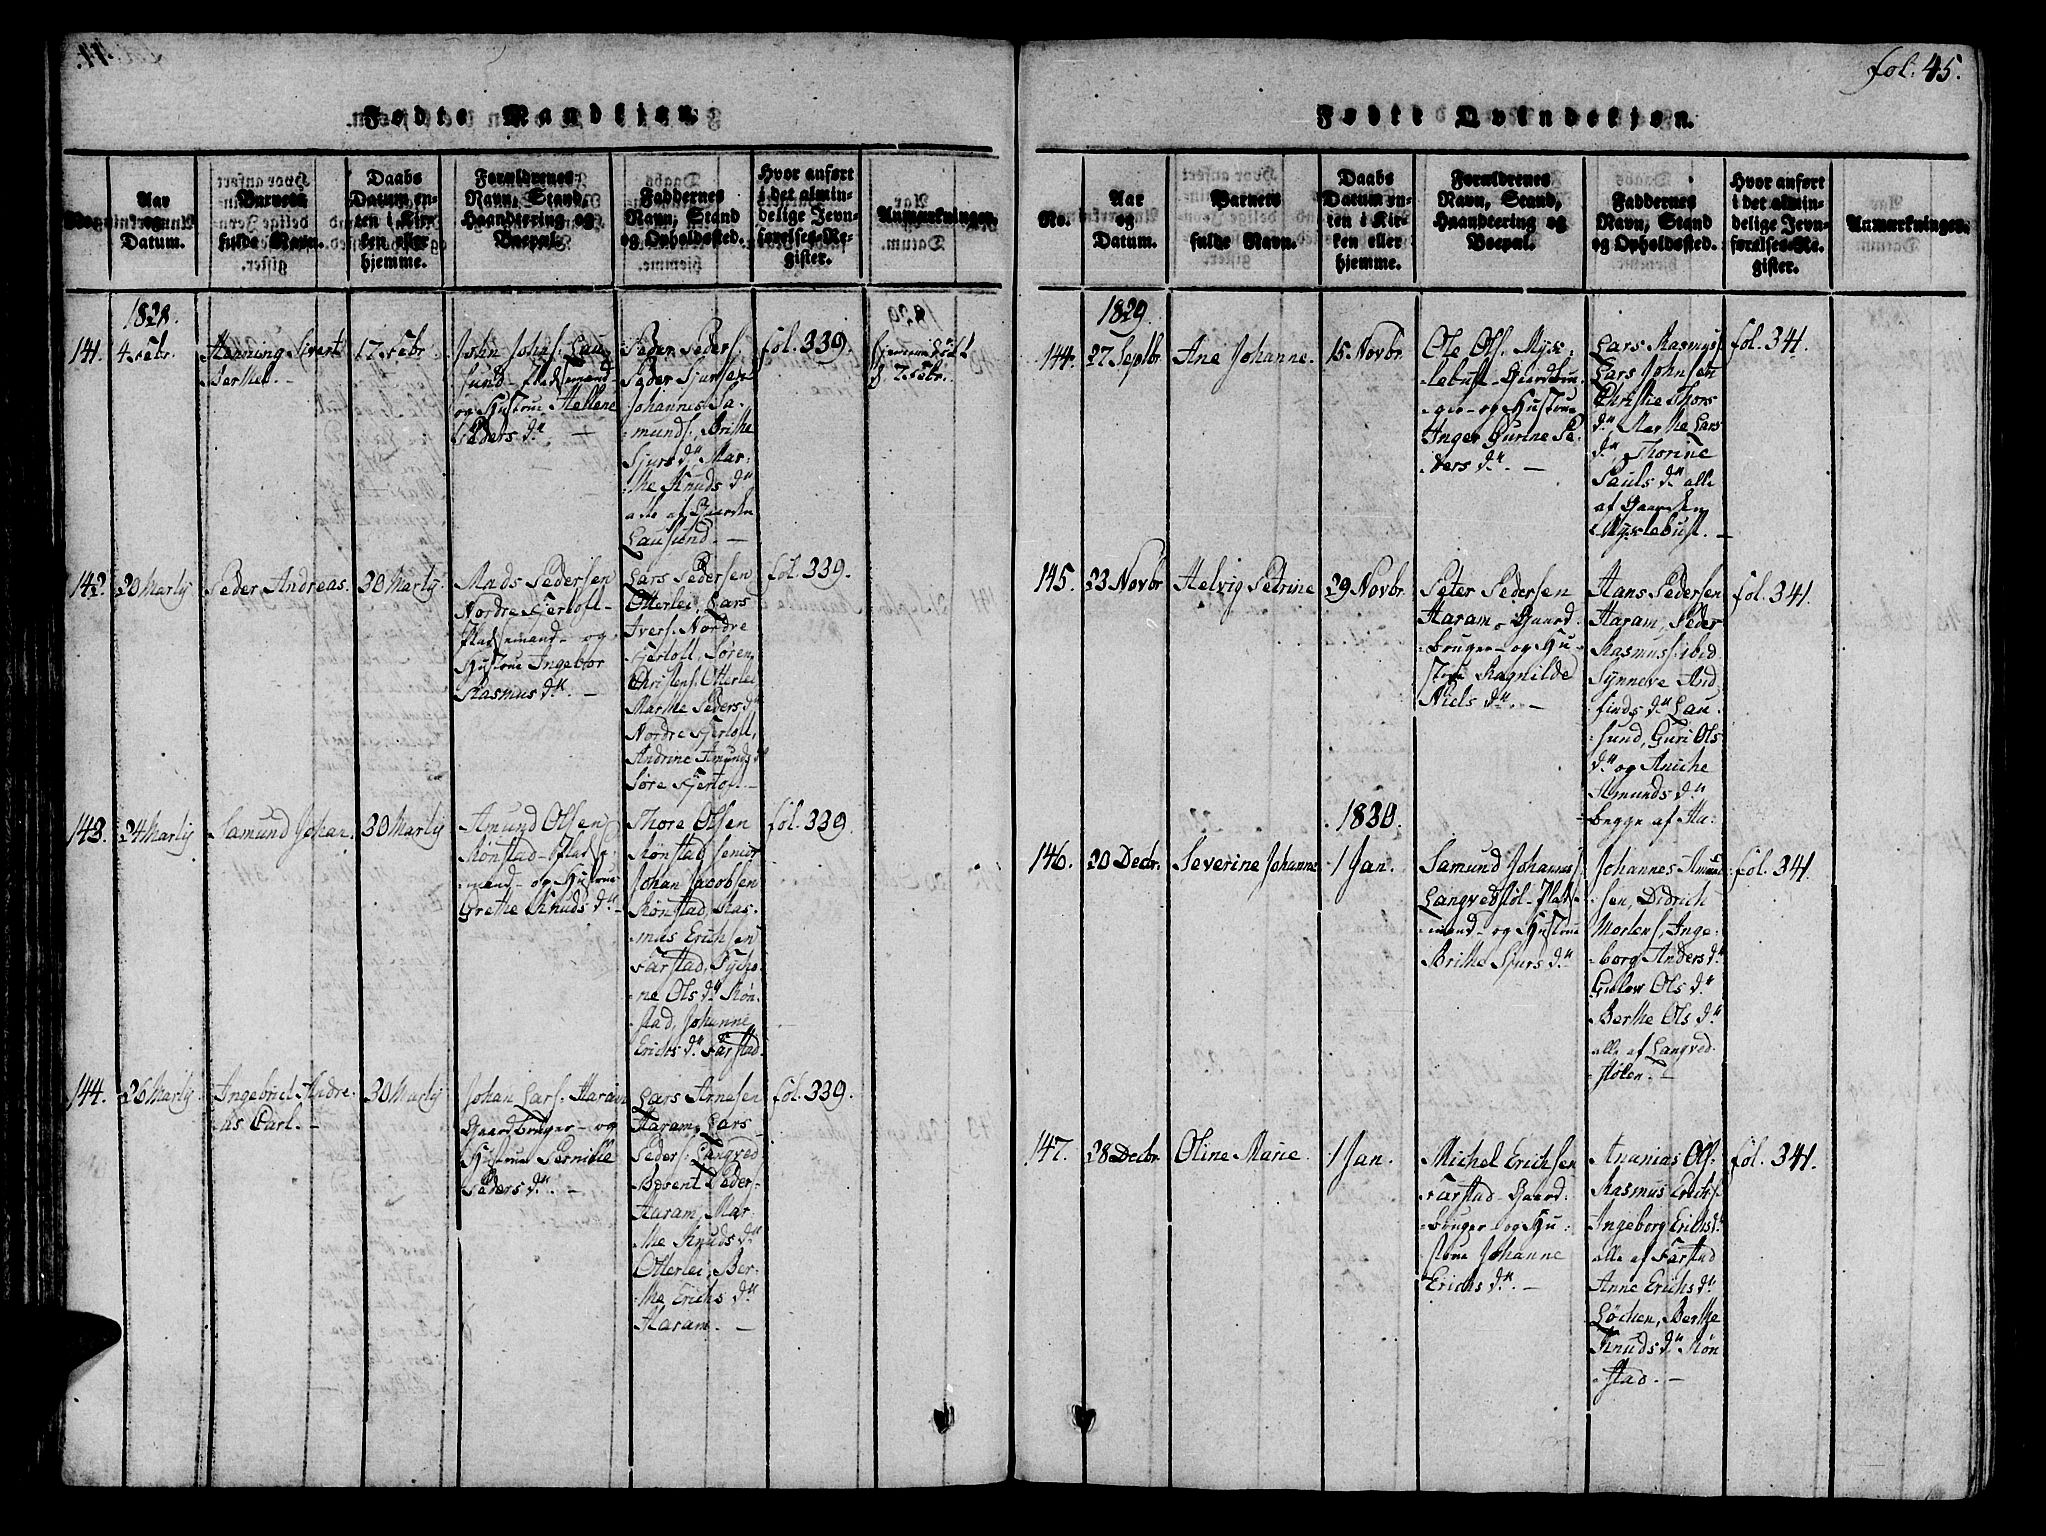 Fødte Mandkjøn.
Aar og Datum.
Barnets fulde Navn.
Daabs Datum enten i Kirken eller hjemme.
Forældrenes Navn, Stand, Haandtering og Boepæl.
Faddernes Navn, Stand og Opholdssted.
Hvor anført i det almindelige Jevnførelses-Register.
Anmærkninger.
141.
4 Febr.
Henning Sivert
Berthel.
17 Febr.
John Johns. Lau-
sund - Pladsemand
og Hustrue Hellene
Peders d.
Peder Peders.
Peder Sjursen
Johannes Sa-
munds., Brithe
Sjurs d. Mar-
the Knuds d.
alle af Gaarden
Lausund. -
fol. 339
142.
20 Marty
Peder Andreas.
30 Marty.
Mads Pedersen
Nordre Fjertoft -
Pladsemand - og
Hustrue Ingebor
Rasmus d. -
Lars Pedersen
Otterlei, Lars
Ivers. Nordre
Fjertoft, Søren
Christens. Otterlei
Marthe Peders d.
Nordre Fjertoft,
Andrine Amunds d.
Søre Fjertoft. -
fol. 339.
143.
24 Marty
Samund Johan.
30 Marty
Amund Olsen
Rønstad - Pladse-
mand - og Hustrue
Grethe Knuds d. -
Thore Olsen
Rønstad senior
Johan Jacobsen
Rønstad, Ras-
mus Erichsen
Farstad,
ne Ols d. Røn-
stad, Johanne
Erichs d. Farstad.
fol. 339.
144.
26 Marty
Ingebrict Andre-
as Carl. -
30 Marty
Johan Lars. Haram
Gaardbruger - og
Hustrue Pernille
Peders d. -
Lars Arnesen
Haram, Lars
Peders. Langved
Bersent Peder-
Haram, Mar-
the Knuds d.
Otterlei, Ber-
the Erichs d.
Haram. -
fol. 339.
fol. 45.
Fødte Qvindekjøn.
No.
Aar og Datum.
Barnets fulde Navn.
Daabs Datum enten i Kirken eller hjemme.
Forældrenes Navn, Stand, Haandtering og Boepæl.
Faddernes Navn, Stand og Opholdssted.
Hvor anført i det almindelige Jevnførelses-Register.
Anmærkninger.
1829
144.
27 Septbr.
Ane Johanne.
15 Novbr.
Ole Ols. Myx-
lebust - Gaardbru-
ger - og Hustrue
Inger Gurine Pe-
ders d. -
Lars Rasmus.
Lars Johnsen
Christie Thors
d. Marthe Lars
d., Thorine
Pauls d. alle
af Gaarden
Myxlebust. -
fol. 341.
145.
23 Novbr
Helvig Petrine
29 Novbr.
Peter Pedersen
Haram - Gaard-
bruger - og Hu-
strue Ragnilde
Niels d. -
Hans Pedersen
Haram, Peder
Rasmus. ibid
Synneve And-
finds d. Lau-
sund, Guri Ols
d. og Aniche
Amunds d.
begge af Ha-
fol. 341.
1830.
146.
20 Decbr.
Severine Johanne
1 Jan.
Samund Johannes.
Langvedstøl - Pladse-
mand - og Hustrue
Brithe Sjurs d.
Johannes Amund-
sen, Didrich
Mortens, Inge-
borg Anders d.
Gulow Ols d.
Berthe Ols d.
alle af Langved-
støten. -
fol. 341.
147.
28 Decbr
Oline Marie.
1 Jan.
Michel Erichsen
Farstad - Gaard-
bruger - og Hu-
strue Johanne
Erichs d. -
Ananias Ols.
Rasmus Erichs.
Ingeborg Erichs d.
alle af Farstad
Anne Erichs d.
Løchen, Berthe
Knuds d. Røn-
stad. -
fol. 341.